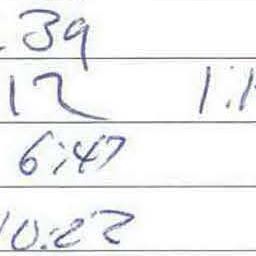 .39
12 1:1
6:47
10:22